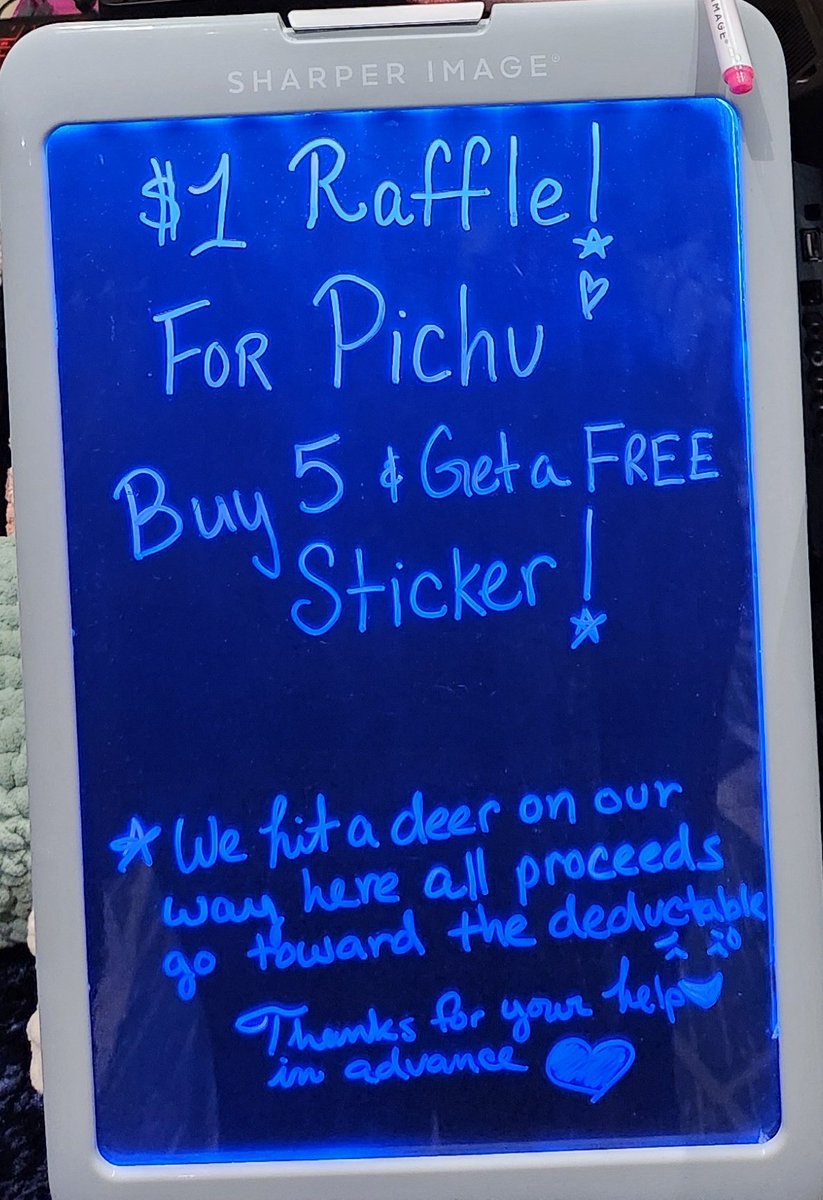 SHARPER IMAGE®
IMAGE®
$1 Raffle!
FOR Pichu
Buy 5 & Get a FREE
Sticker!
We hit a deer on our
way here all proceeds
go toward the deductable
Thanks for your help
in advance